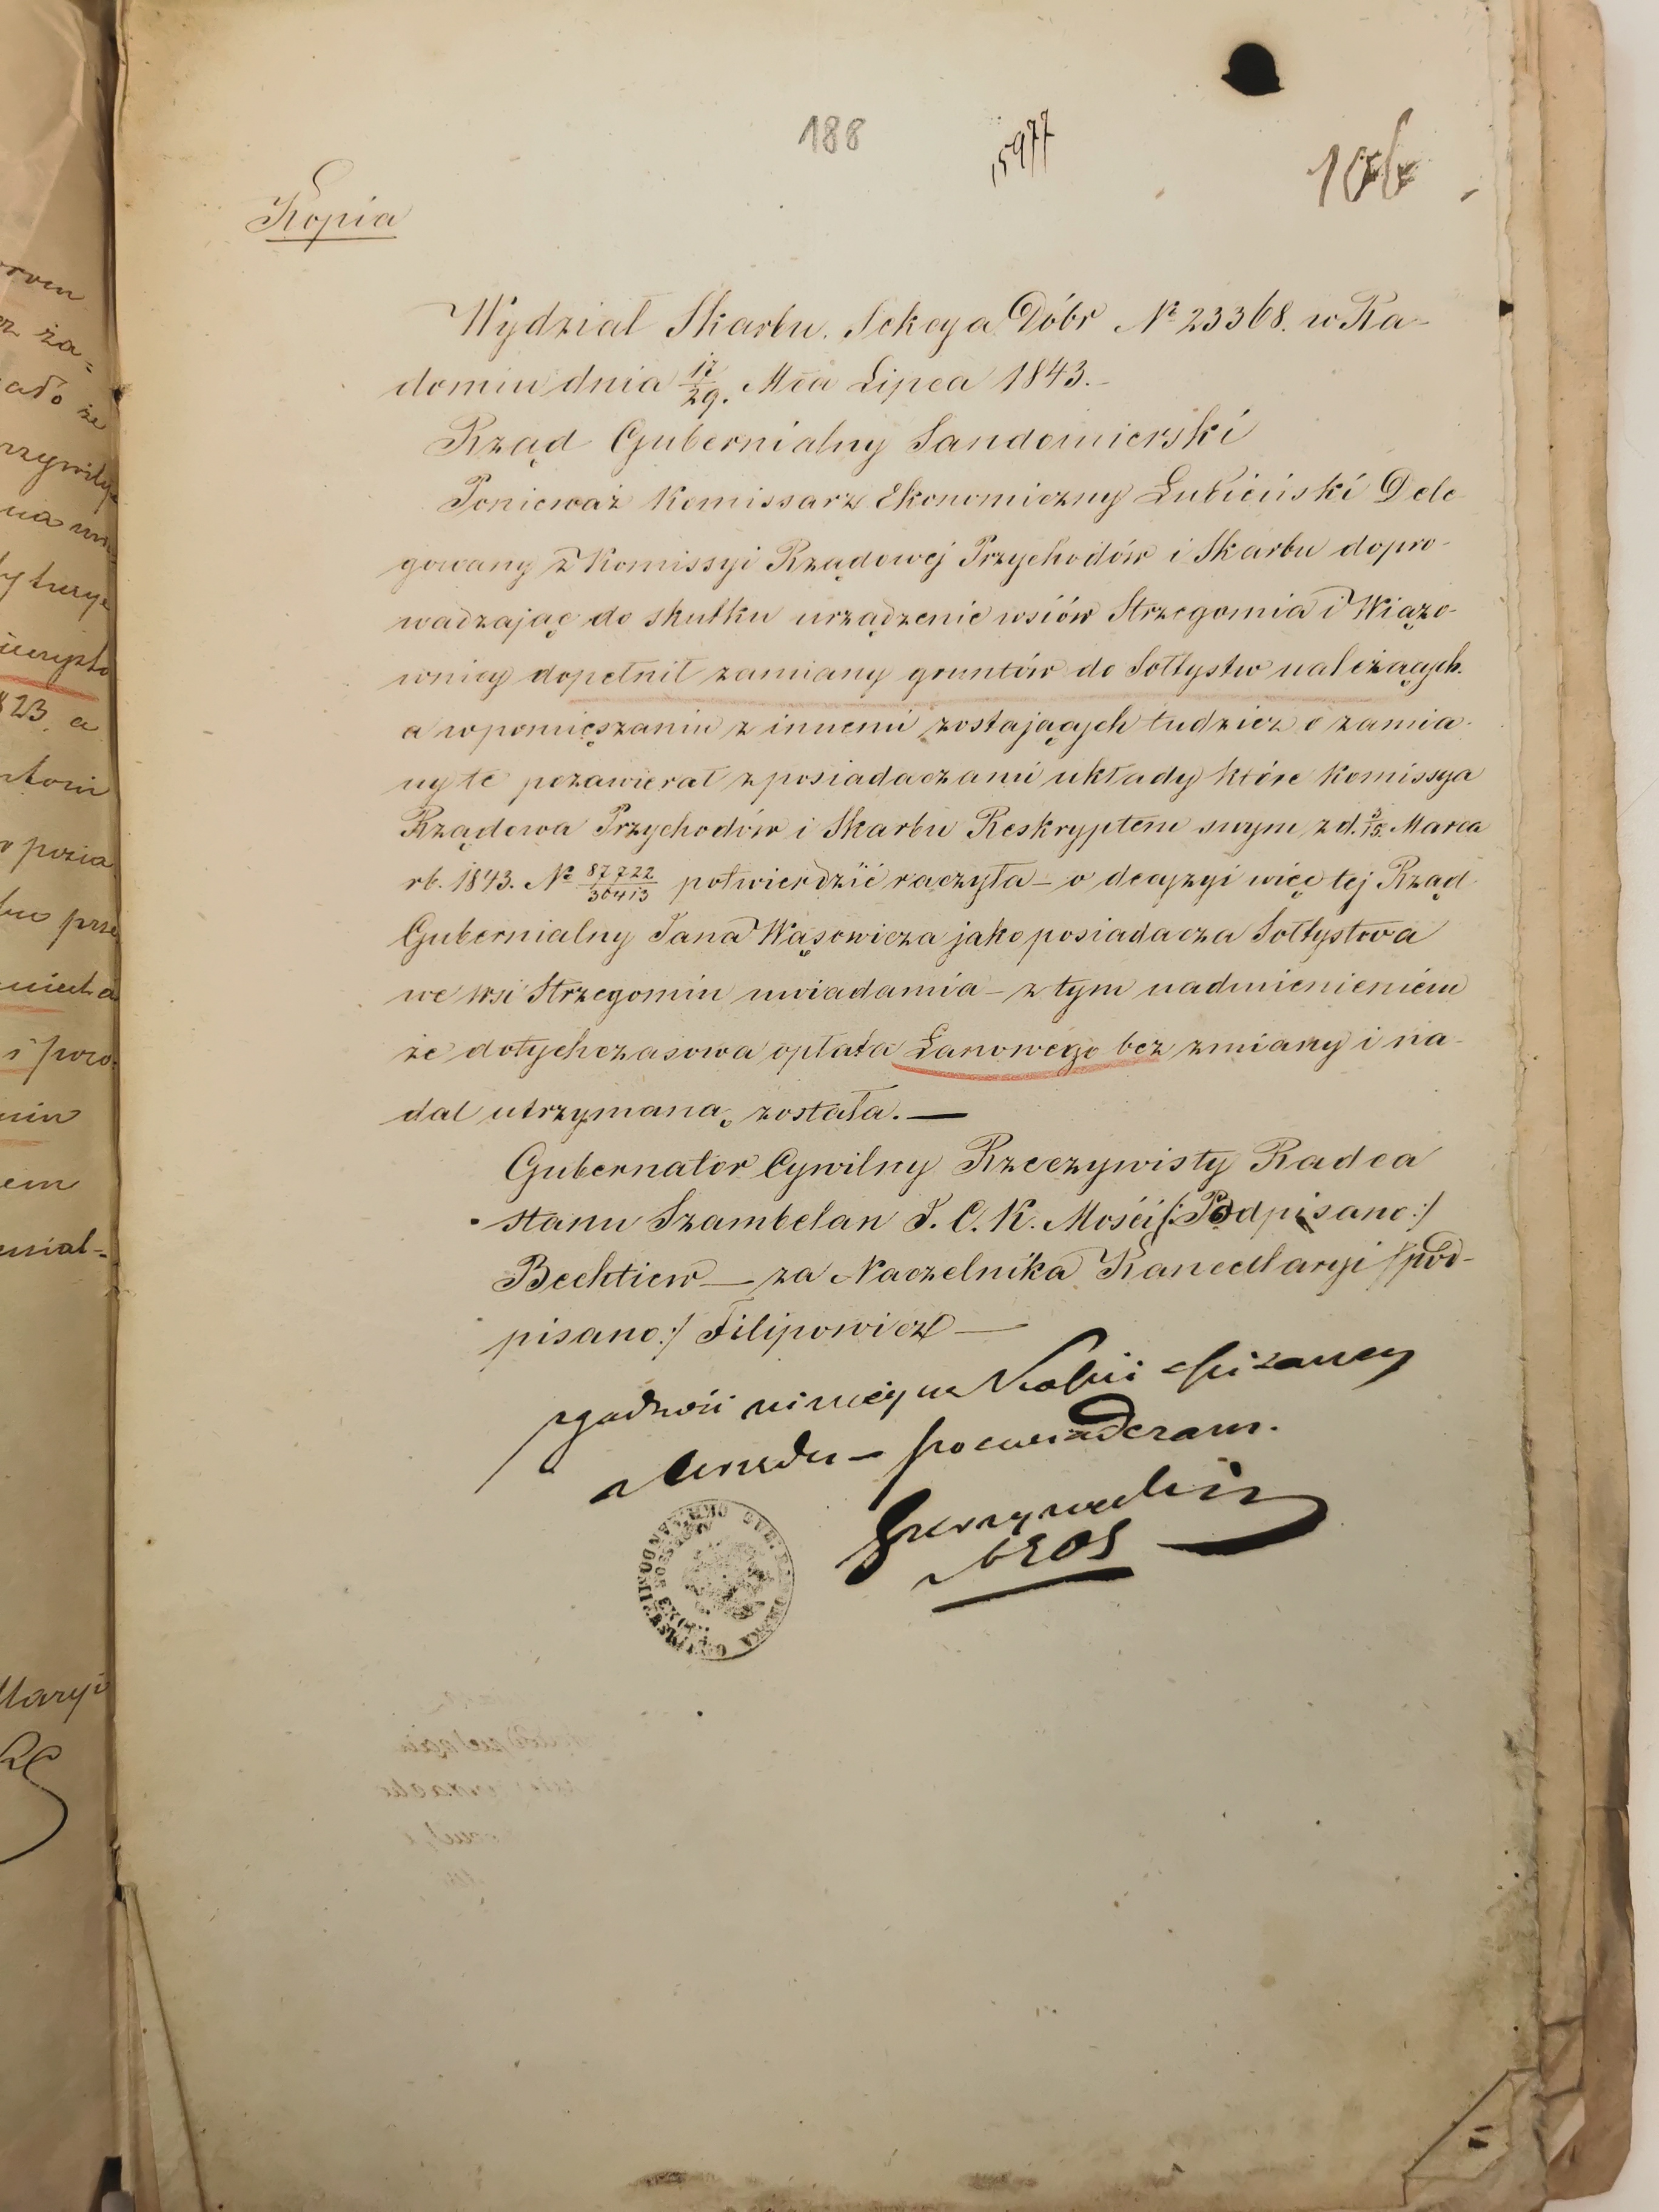 188
15977
106
Kopia
Wydział Skarbu. Sekcya Dóbr № 23368. w Ra-
domiu dnia 17/29. Mca Lipca 1843.-
Rząd Gubernialny Sandomierski
Ponieważ Komissarz Ekonomiczny Lubieński Dele
gowany z Komissyi Rządowej Przychodów i Skarbu dopro-
wadzając do skutku urządzenie wsiów Strzegomia i Wiązo-
wnicy dopełnił zamiany gruntów do Sołtystw należących.
a w pomięszaniu z innemi zostających tudzież o zamia-
ny te pozawierał z posiadaczami układy które Komissya
Rządowa Przychodów i Skarbu Reskryptem swym z d. 3/15. Marca
rb. 1843. № 87722/36413 potwierdzić raczyła – o decyzyi więc tej Rząd
Gubernialny Jana Wąsowicza jako posiadacza Sołtystwa
we wsi Strzegomiu uwiadamia – z tym nadmienieniem
że dotychczasowa opłata Łanowego bez zmiany i na-
dal utrzymaną została. —
Gubernator Cywilny Rzeczywisty Radca
stanu Szambelan J. C. K. Mości /: Podpisano :/
Bechtiew — za Naczelnika Kancellaryi /: pod-
pisano :/ Filipowicz —
zgodność niniejszej Kopii
Urzędu – poświadczam.